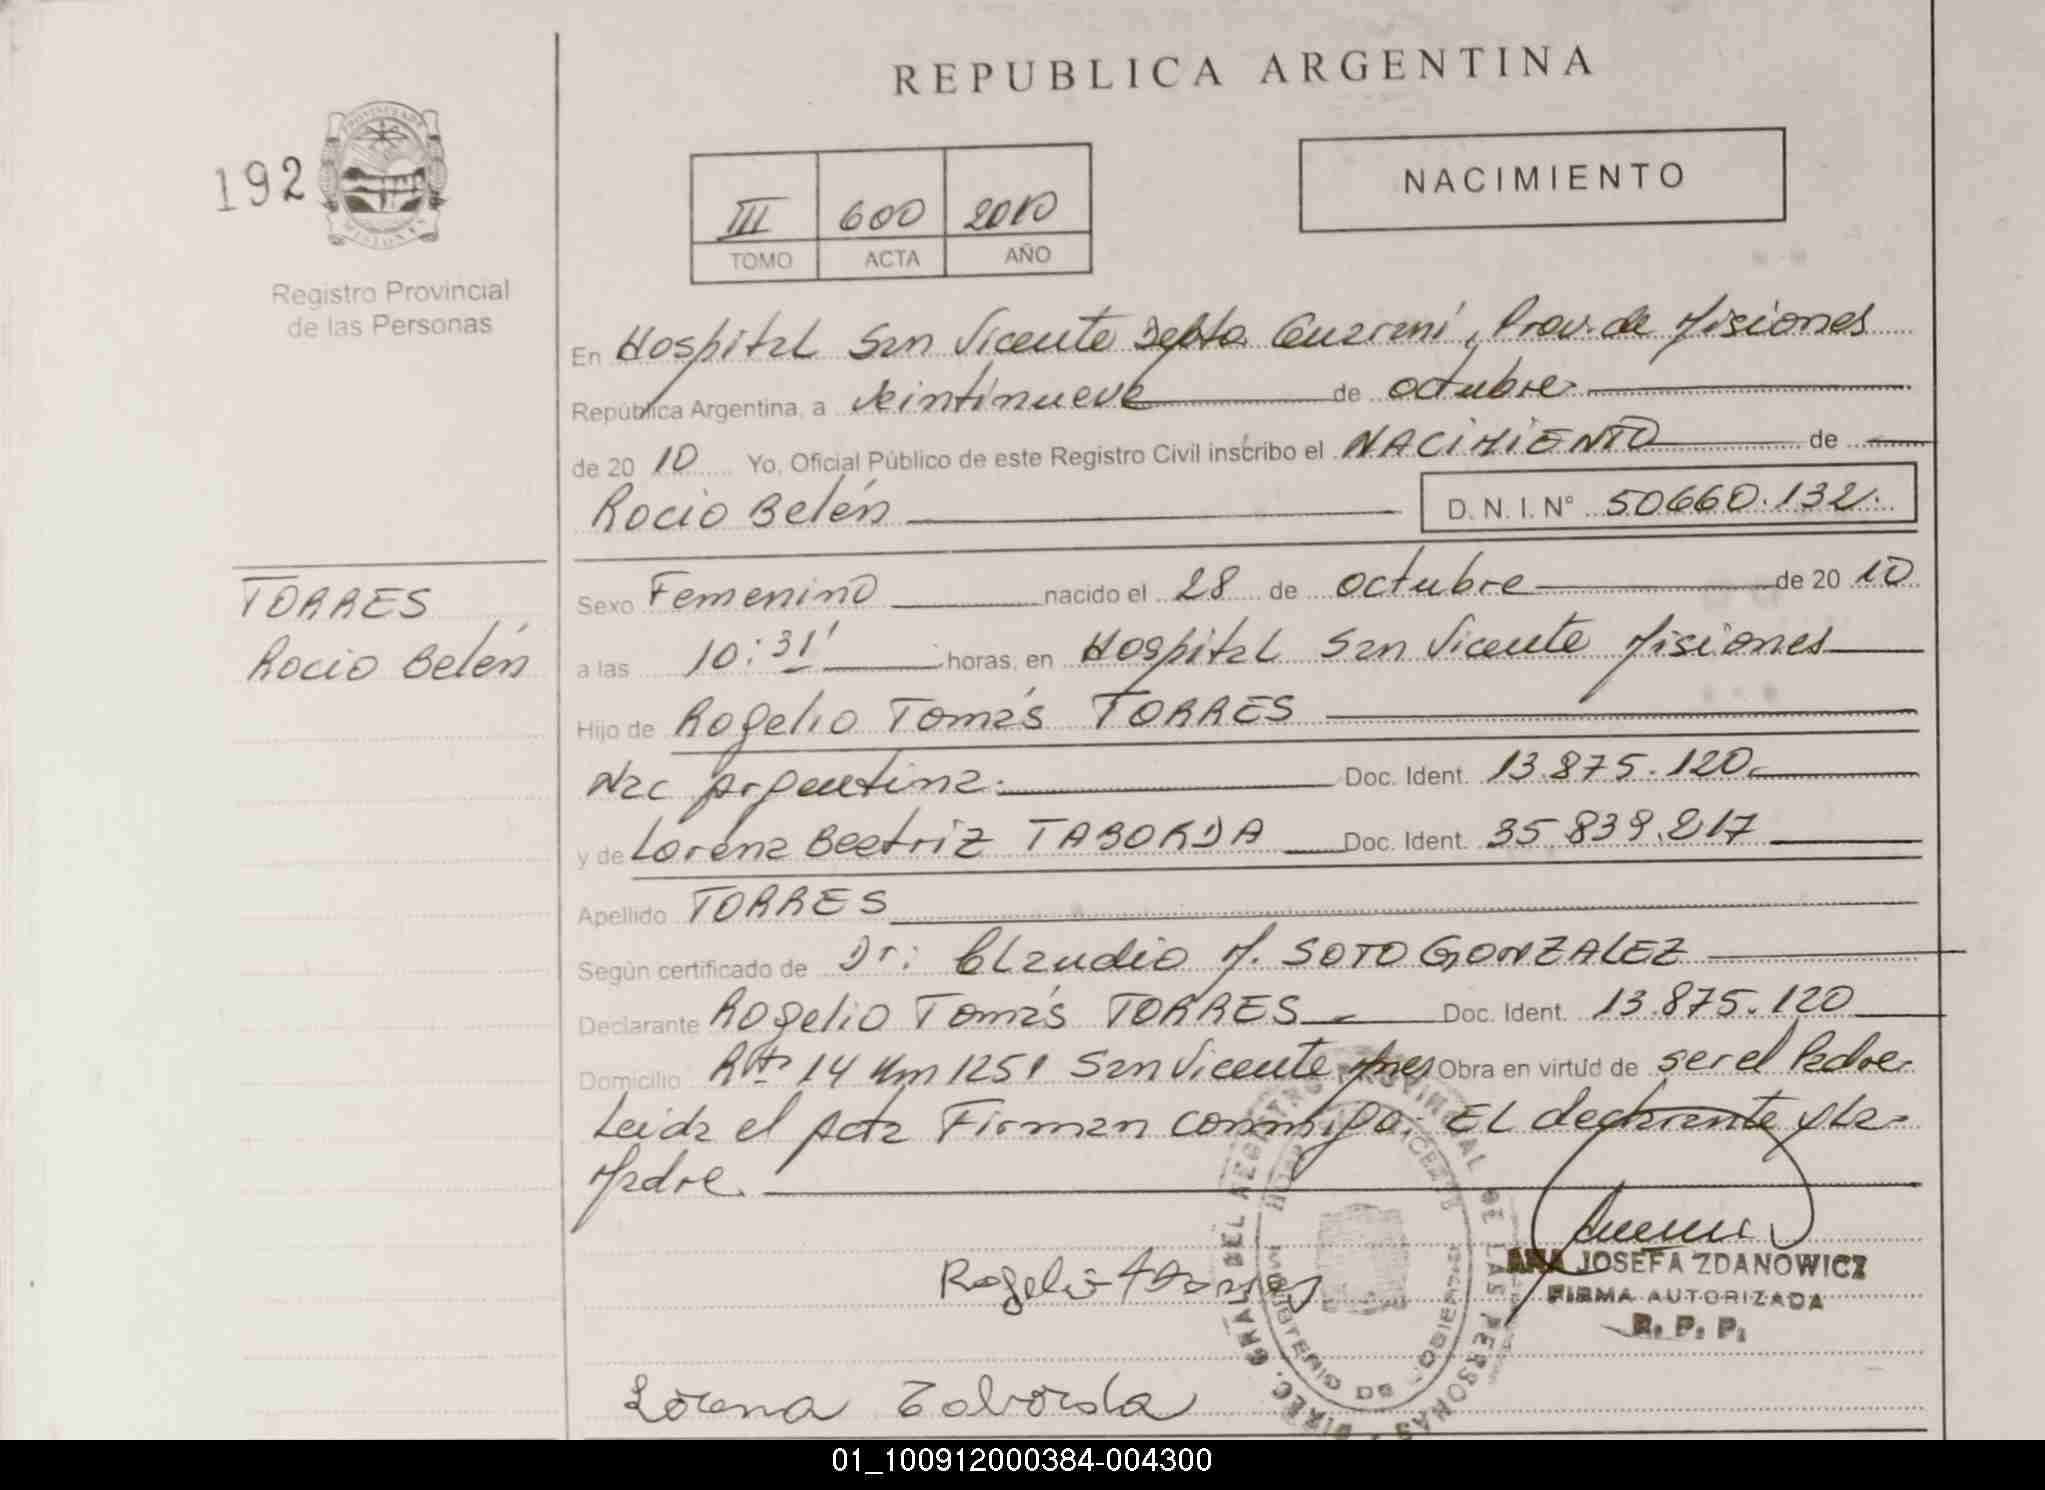 REPUBLICA ARGENTINA
192
PROVINCIA DE MISIONES
Registro Provincial
de las Personas
III 600 2010
TOMO ACTA AÑO
NACIMIENTO
En Hospital San Vicente Depto Guaraní, Prov. de Misiones
República Argentina, a veintinueve de octubre
de 20 10 Yo, Oficial Público de este Registro Civil inscribo el NACIMIENTO de
Rocio Belén D. N. I. N° 50660.132.
TORRES
Rocio Belén
Sexo Femenino nacido el 28 de octubre de 20 10
a las 10:31' horas, en Hospital San Vicente Misiones
Hijo de Rogelio Tomás TORRES
Nac Argentina. Doc. Ident. 13.875.120.
y de Lorena Beatriz TABORDA Doc. Ident. 35.839.217
Apellido TORRES
Según certificado de Dr: Claudio M. SOTO GONZALEZ
Declarante Rogelio Tomás TORRES Doc. Ident. 13.875.120
Domicilio Rta 14 Km 1251 San Vicente Mnes Obra en virtud de ser el Padre.
Leida el Acta Firman conmigo: EL declarante y La
Madre.
Rogelio Torres
ANA JOSEFA ZDANOWICZ
FIRMA AUTORIZADA
R. P. P.
DIREC. GRAL. DEL REGISTRO PROVINCIAL DE LAS PERSONAS
MINISTERIO DE GOBIERNO
Lorena Taborda
01_100912000384-004300